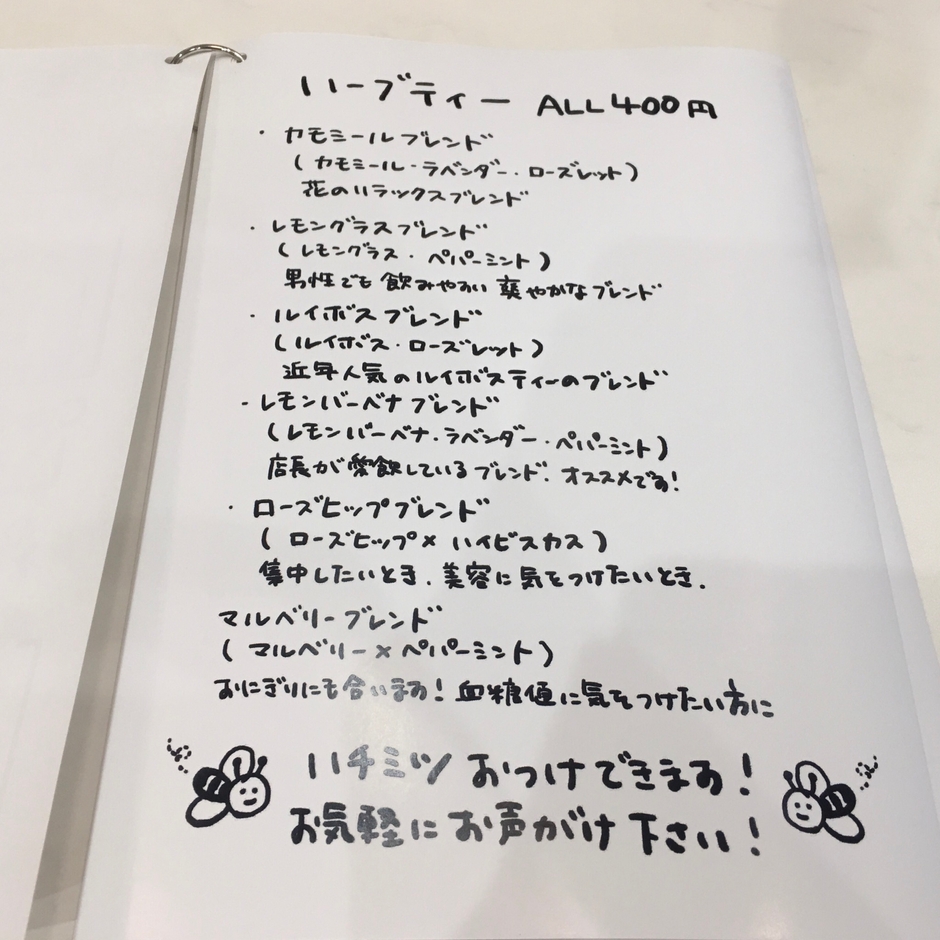 ハーブティー ALL400円
・カモミールブレンド
(カモミール・ラベンダー・ローズレット)
花のリラックスブレンド
・レモングラスブレンド
(レモングラス・ペパーミント)
男性でも飲みやすい爽やかなブレンド
・ルイボスブレンド
(ルイボス・ローズレット)
近年人気のルイボスティーのブレンド
・レモンバーベナブレンド
(レモンバーベナ・ラベンダー・ペパーミント)
店長が愛飲しているブレンド。オススメです!
・ローズヒップブレンド
(ローズヒップ×ハイビスカス)
集中したいとき、美容に気をつけたいとき。
マルベリーブレンド
(マルベリー×ペパーミント)
おにぎりにも合います!血糖値に気をつけたい方に
ハチミツおつけできます!
お気軽にお声がけ下さい!